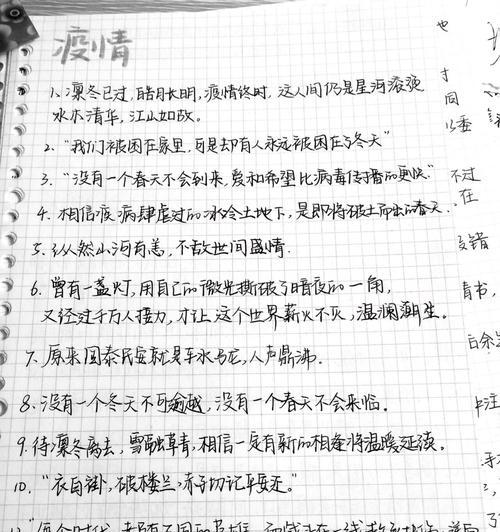 疫情
1、凛冬已过，皓月长明，疫情终时，这人间仍是星河滚烫
水木清华，江山如故。
2、"我们被困在家里，可是却有人永远被困在了冬天"
3、"没有一个春天不会到来，爱和希望比病毒传播的更快"
4、相信疫病肆虐过的冰冷土地下，是即将破土而出的春天.
5、纵然山河有恙，不敌世间盛情.
6、曾有一盏灯，用自己的微光撕破了暗夜的一角，
又经过千万人接力，才让这个世界薪火不灭，温澜潮生。
7、原来国泰民安就是车水马龙，人声鼎沸.
8、没有一个冬天不可逾越，没有一个春天不会来临。
9、待凛冬离去，雪融草青，相信一定有新的相逢将温暖延续。
10、"衣白褂，破楼兰，赤子切记平安还。"
也
才
同
以委
不过
在
青书，